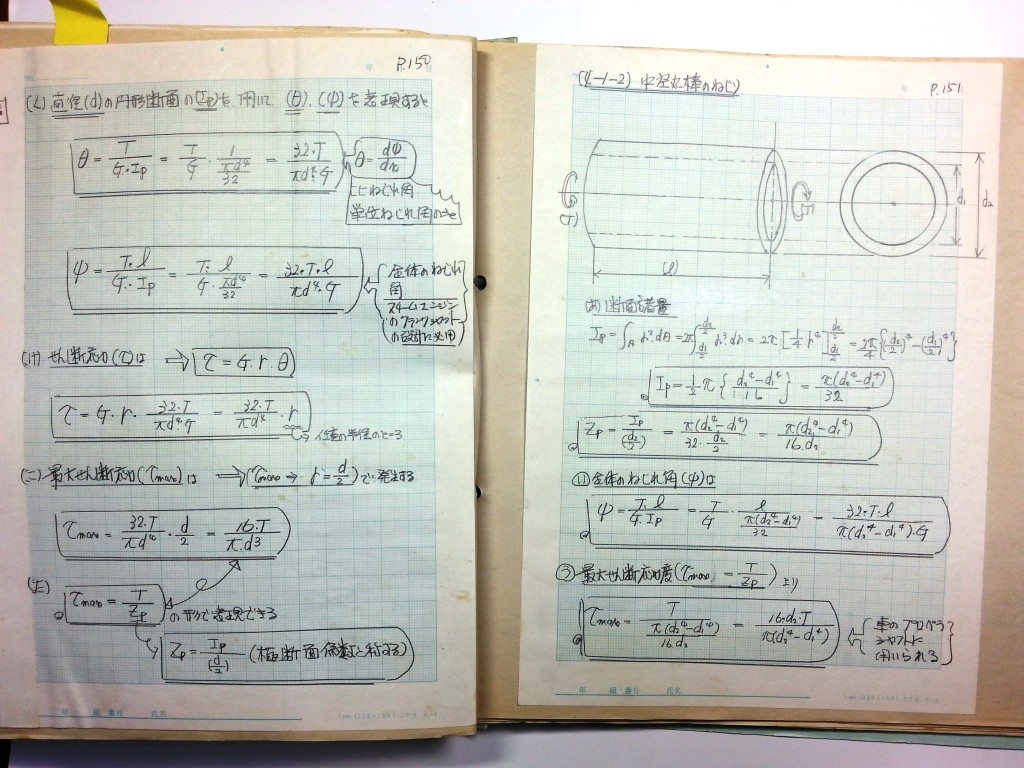 P.150
(く) 直径(d)の円形断面の(Ip)を用いて (θ) (ψ)を表現すると
θ = T/(G・Ip) = T/G・1/(πd⁴/32) = 32・T/(πd⁴・G)
θ = dψ/dx
単位ねじれ角のこと
ψ = T・l/(G・Ip) = T・l/(G・πd⁴/32) = 32・T・l/(πd⁴・G)
全体のねじれ角
スチームエンジン
のクランクシャフト
の設計に必用
(け) せん断応力(τ)は ⇒ τ = G・r・θ
τ = G・r・32・T/(πd⁴・G) = 32・T/(πd⁴)・r
任意の半径のところ
(こ) 最大せん断応力(τmax)は ⇒ (τmax ⇒ r = d/2)で発生する
τmax = 32・T/(πd⁴)・d/2 = 16・T/(π・d³)
τmax = T/Zp の形で表現できる
Zp = Ip/(d/2) (極断面係数と称する)
年 組 番号 氏名
P.151
(4-1-2) 中空丸棒のねじり
(T)
(T)
d₁
d₂
(l)
(あ) 断面諸量
Ip = ∫A r²・dA = 2π∫ r³・dr = 2π・[1/4 r⁴] = 2π/4{(d₂/2)⁴-(d₁/2)⁴}
Ip = 1/2 π {(d₂⁴-d₁⁴)/16} = π(d₂⁴-d₁⁴)/32
Zp = Ip/(d₂/2) = π(d₂⁴-d₁⁴)/(32・d₂/2) = π(d₂⁴-d₁⁴)/(16・d₂)
(い) 全体のねじれ角(ψ)は
ψ = T・l/(G・Ip) = T/G・l/(π(d₂⁴-d₁⁴)/32) = 32・T・l/(π(d₂⁴-d₁⁴)・G)
(う) 最大せん断応力度(τmax = T/Zp)より
τmax = T/(π(d₂⁴-d₁⁴)/16・d₂) = 16・d₂・T/(π(d₂⁴-d₁⁴))
車のプロペラ
シャフトに
用いられる
年 組 番号 氏名